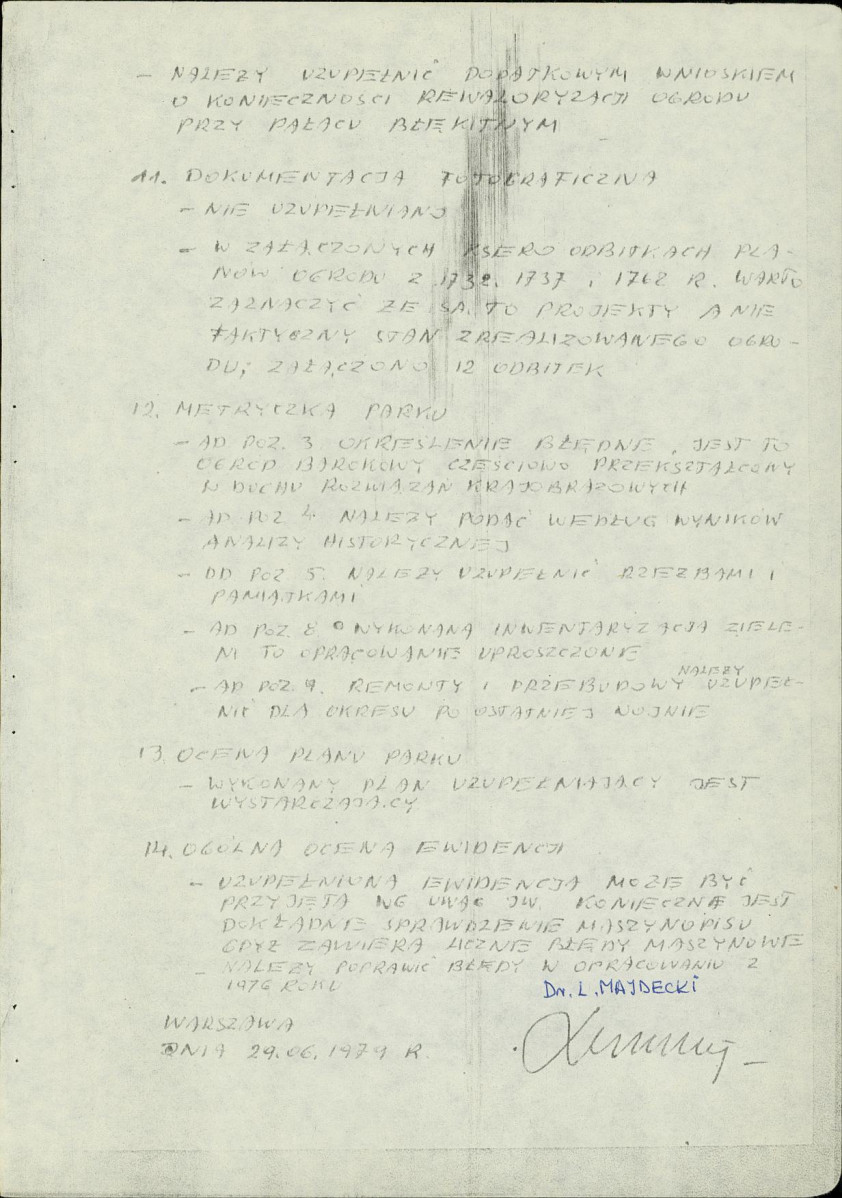 - NALEŻY UZUPEŁNIĆ DODATKOWYM WNIOSKIEM
O KONIECZNOŚCI REWALORYZACJI OGRODU
PRZY PAŁACU BŁĘKITNYM
11. DOKUMENTACJA FOTOGRAFICZNA
- NIE UZUPEŁNIANO
- W ZAŁĄCZONYCH KSERO ODBITKACH PLA-
NÓW OGRODU Z 1732, 1737 i 1762 R. WARTO
ZAZNACZYĆ ŻE SĄ TO PROJEKTY A NIE
FAKTYCZNY STAN ZREALIZOWANEGO OGRO-
DU; ZAŁĄCZONO 12 ODBITEK
12. METRYCZKA PARKU
- AD POZ. 3 OKREŚLENIE BŁĘDNE, JEST TO
OGRÓD BAROKOWY CZĘŚCIOWO PRZEKSZTAŁCONY
W DUCHU ROZWIĄZAŃ KRAJOBRAZOWYCH
- AD POZ 4. NALEŻY PODAĆ WEDŁUG WYNIKÓW
ANALIZY HISTORYCZNEJ
- DD POZ 5. NALEŻY UZUPEŁNIĆ RZEŹBAMI I
PAMIĄTKAMI
- AD POZ. 8 WYKONANA INWENTARYZACJA ZIELE-
NI TO OPRACOWANIE UPROSZCZONE
- AD POZ. 9. REMONTY I PRZEBUDOWY NALEŻY UZUPEŁ-
NIĆ DLA OKRESU PO OSTATNIEJ WOJNIE
13. OCENA PLANU PARKU
- WYKONANY PLAN UZUPEŁNIAJĄCY JEST
WYSTARCZAJĄCY
14. OGÓLNA OCENA EWIDENCJI
- UZUPEŁNIONA EWIDENCJA MOŻE BYĆ
PRZYJĘTA WG UWAG JW. KONIECZNE JEST
DOKŁADNE SPRAWDZENIE MASZYNOPISU
GDYŻ ZAWIERA LICZNE BŁĘDY MASZYNOWE
- NALEŻY POPRAWIĆ BŁĘDY W OPRACOWANIU Z
1976 ROKU
Dr. L. MAJDECKI
WARSZAWA
DNIA 29.06.1979 R.